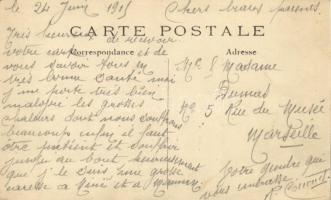 le 24 Juin 1915 Chers beaux parents.
CARTE POSTALE
Correspondance Adresse
Très heureux de recevoir
votre carte et de
vous savoir tous en
très bonne santé moi
je me porte très bien
malgré les grosses
chaleurs dont nous
beaucoup enfin il faut
être patient et
jusqu'au bout
que j'le suis une grosse
caresse a et a
Me & Madame
Dumas
No 5 Rue du Musé
Marseille
Votre gendre que
vous embrasse